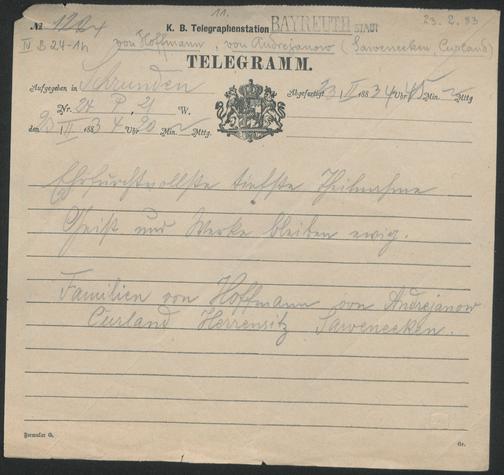 11.
№ 1284 K. B. Telegraphenstation BAYREUTH STADT 23. 2. 83
IV B 24-1h von Hoffmann, von Andrejanow (Sawenecken, Curland)
TELEGRAMM.
Aufgegeben in Schrunden Abgefertigt 23/II 1883 4 Uhr 45 Min. Mttg
Nr. 24 P, 21 W.
den 23/II 1883 4 Uhr 20 Min. Mttg.
Ehrfurchtvollste tiefste Theilnahme
Geist und Werke bleiben ewig.
Familien von Hoffmann von Andrejanow
Curland Herrensitz Sawenecken.
Formular G. Gr.